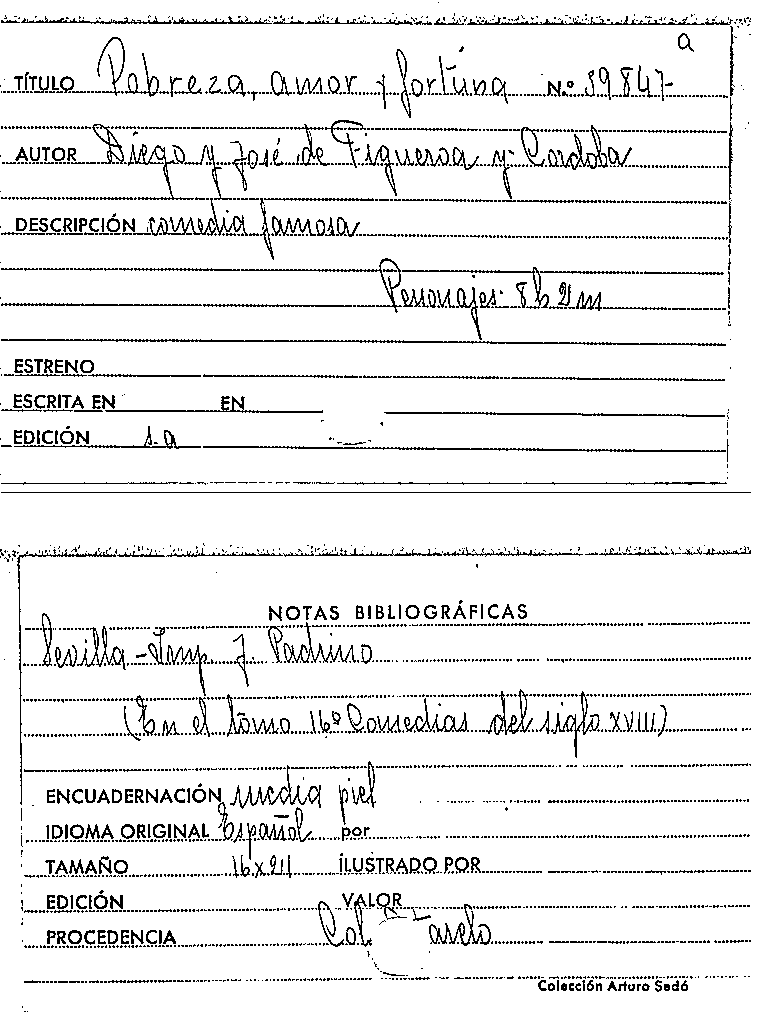 a
TÍTULO Pobreza, amor y fortuna N.º 59847
AUTOR Diego y José de Figueroa y Cordoba
DESCRIPCIÓN comedia famosa
Personajes: 8h 2m
ESTRENO
ESCRITA EN EN
EDICIÓN s.a
NOTAS BIBLIOGRÁFICAS
Sevilla - Imp J. Padrino
(En el tomo 16º Comedias del siglo XVIII)
ENCUADERNACIÓN media piel
IDIOMA ORIGINAL Español por
TAMAÑO 16x21 ILUSTRADO POR
EDICIÓN VALOR
PROCEDENCIA Col.
Colección Arturo Sedó